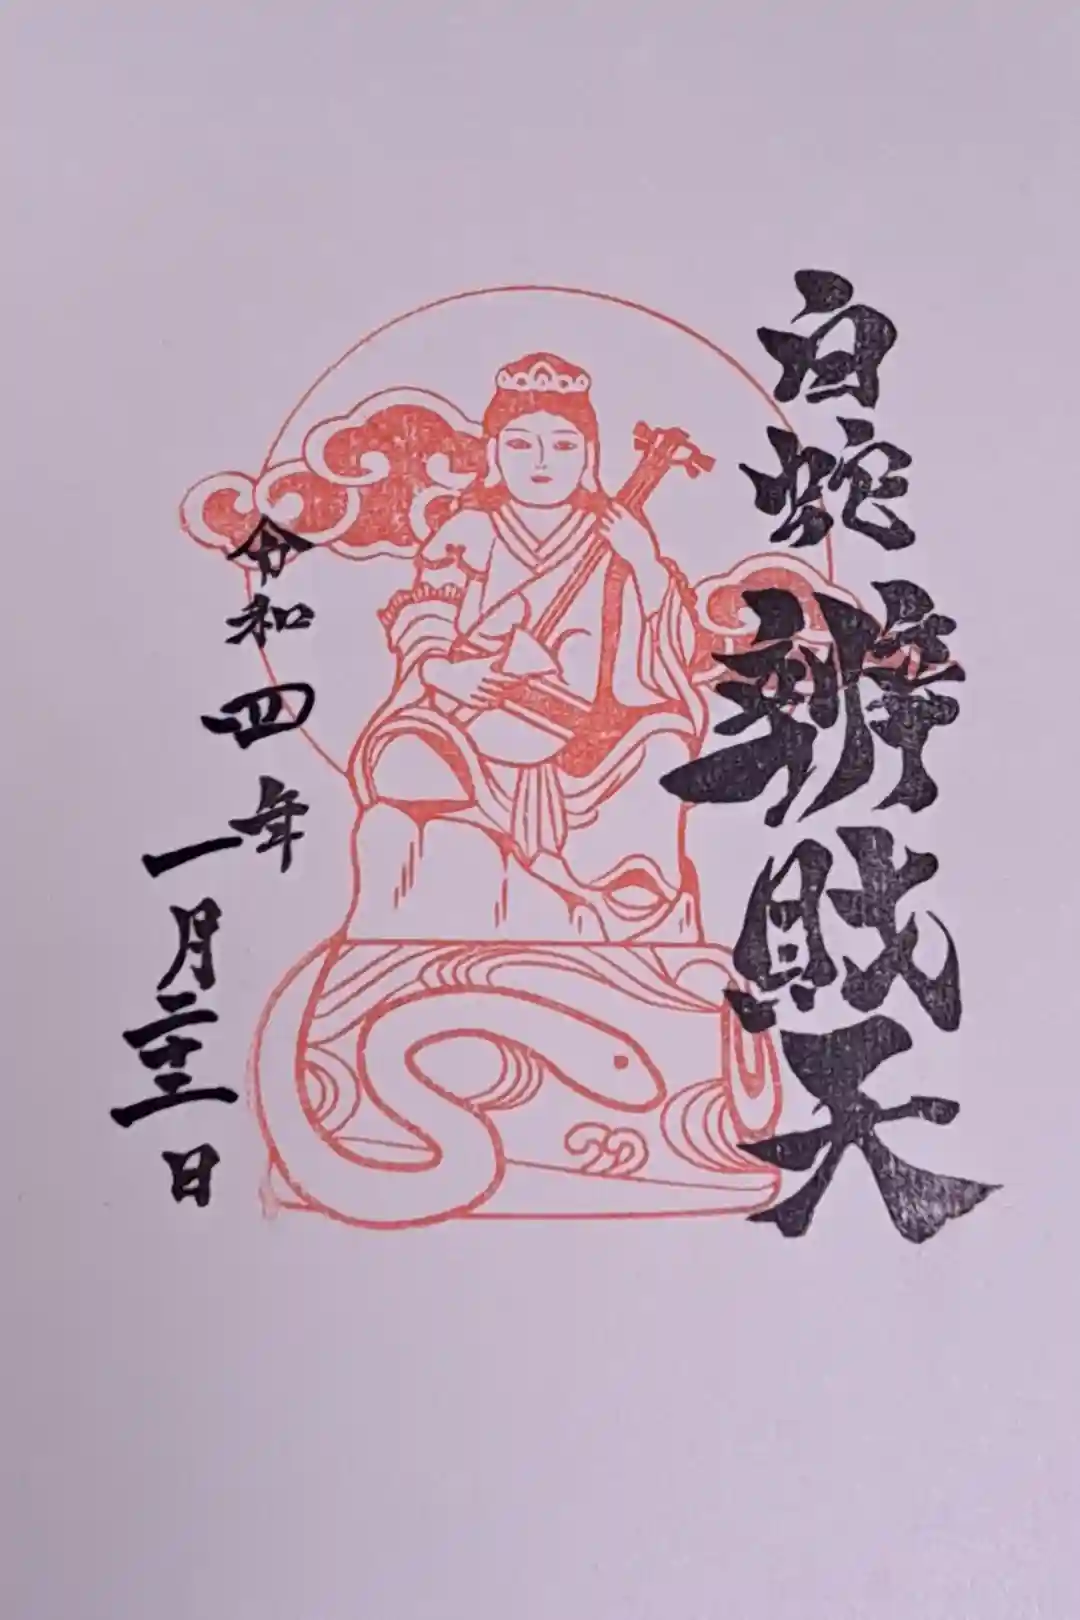 白蛇
辨財天
令和四年
一月二十二日